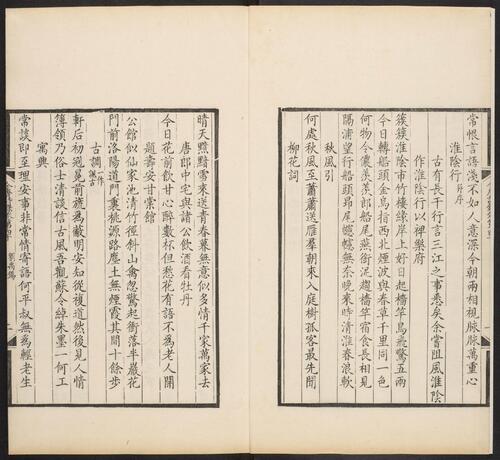 常恨言語淺不如人意深今朝兩相視脉脉萬重心
淮陰行并序
古有長干行言三江之事悉矣余嘗阻風淮陰
作淮陰行以裨樂府
簇簇淮陰市竹樓緣岸上好日起檣竿烏飛驚五兩
今日轉船頭金烏指西北煙波與春草千里同一色
何物令儂羨羨郎船尾燕銜泥趂檣竿宿食長相見
隔浦望行船頭昂尾幰幰無奈晚來時清淮春浪軟
秋風引
何處秋風至蕭蕭送雁羣朝來入庭樹孤客最先聞
柳花詞
晴天黯黯雪來送青春暮無意似多情千家萬家去
唐郎中宅與諸公飲酒看牡丹
今日花前飲甘心醉數杯但愁花有語不為老人開
題壽安甘棠館
公館似仙家池清竹徑斜山禽忽驚起衝落半巖花
門前洛陽道門裏桃源路塵土無煙霞其間十餘步
古調一作諷古
軒后初冠冕前旒為蔽明安知從複道然後見人情
簿領乃俗士清談信古風吾觀蘇令綽朱墨一何工
寓興
常談即至理安事非常情寄語何平叔無為輕老生